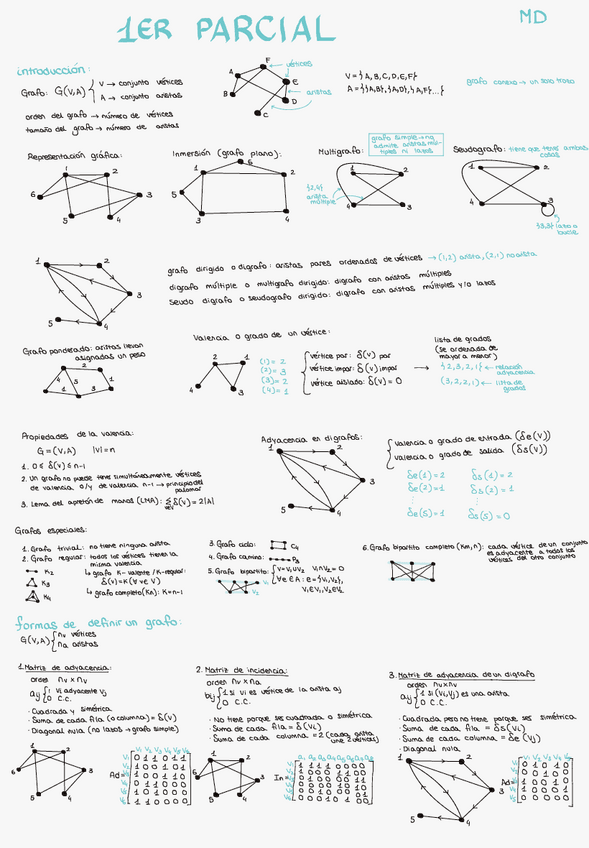 1ER PARCIAL
MD
introducción:
Grafo: G(V,A) { V → conjunto vértices
A → conjunto aristas
orden del grafo → número de vértices
tamaño del grafo → número de aristas
F
A
B
E
D
C
vértices
aristas
V = {A, B, C, D, E, F}
A = {{A,B}, {A,D}, {A,F}...}
grafo conexo → un solo trozo
Representación gráfica:
1 2 3 4 5 6
Inmersión (grafo plano):
1 2 3 4 5 6
Multigrafo:
grafo simple → no
admite aristas múl-
tiples ni lazos
1 2 3 4
{2,4}
arista
múltiple
Seudografo: tiene que tener ambas
cosas
1 2 3 4
{3,3} lazo o
bucle
1 2 3 4 5
grafo dirigido o digrafo: aristas, pares ordenados de vértices → (1,2) arista, (2,1) no arista
digrafo múltiple o multigrafo dirigido: digrafo con aristas múltiples
seudo digrafo o seudografo dirigido: digrafo con aristas múltiples y/o lazos
Grafo ponderado: aristas llevan
asignadas un peso
Valencia o grado de un vértice:
1 2 3 4
(1) = 2
(2) = 3
(3) = 2
(4) = 1
vértice par: δ(v) par
vértice impar: δ(v) impar
vértice aislado: δ(v) = 0
lista de grados
(se ordena de
mayor a menor)
{2,3,2,1} ← relación
adyacencia
(3,2,2,1) ← lista de
grados
Propiedades de la valencia:
G = (V,A) |V| = n
1. 0 ≤ δ(v) ≤ n-1
2. Un grafo no puede tener simultáneamente vértices
de valencia 0 y de valencia n-1 → principio del
palomar
3. Lema del apretón de manos (LMA): Σ δ(v) = 2|A|
v∈V
Adyacencia en digrafos:
1 2 3 4 5
valencia o grado de entrada (δe(v))
valencia o grado de salida (δs(v))
δe(1) = 2 δs(1) = 2
δe(2) = 1 δs(2) = 1
δe(5) = 1 δs(5) = 0
Grafos especiales:
1. Grafo trivial: no tiene ninguna arista
2. Grafo regular: todos los vértices tienen la
misma valencia
K2
K3
K4
↳ grafo K-valente / K-regular:
δ(v) = K (∀ v ∈ V)
↳ grafo completo (Kn): K = n-1
3. Grafo ciclo: C4
4. Grafo camino: P3
5. Grafo bipartito: { V = V1 ∪ V2 V1 ∩ V2 = ∅
∀ e ∈ A : e = {v1, v2},
v1 ∈ V1, v2 ∈ V2
V1
V2
6. Grafo bipartito completo (Km,n): cada vértice de un conjunto
es adyacente a todos los
vértices del otro conjunto
formas de definir un grafo:
G(V,A) { nv vértices
na aristas
1. Matriz de adyacencia:
orden nv x nv
aij { 1 vi adyacente vj
0 c.c.
· Cuadrada y simétrica
· Suma de cada fila (o columna) = δ(v)
· Diagonal nula (no lazos → grafo simple)
2. Matriz de incidencia:
orden nv x na
bij { 1 si vi es vértice de la arista aj
0 c.c.
· No tiene porque ser cuadrada o simétrica
· Suma de cada fila = δ(vi)
· Suma de cada columna = 2 (cada arista
une 2 vértices)
3. Matriz de adyacencia de un digrafo
orden nv x nv
aij { 1 si (vi,vj) es una arista
0 c.c.
· Cuadrada pero no tiene porque ser simétrica
· Suma de cada fila = δs(vi)
· Suma de cada columna = δe(vj)
· Diagonal nula
Ad =
In =
Ad =